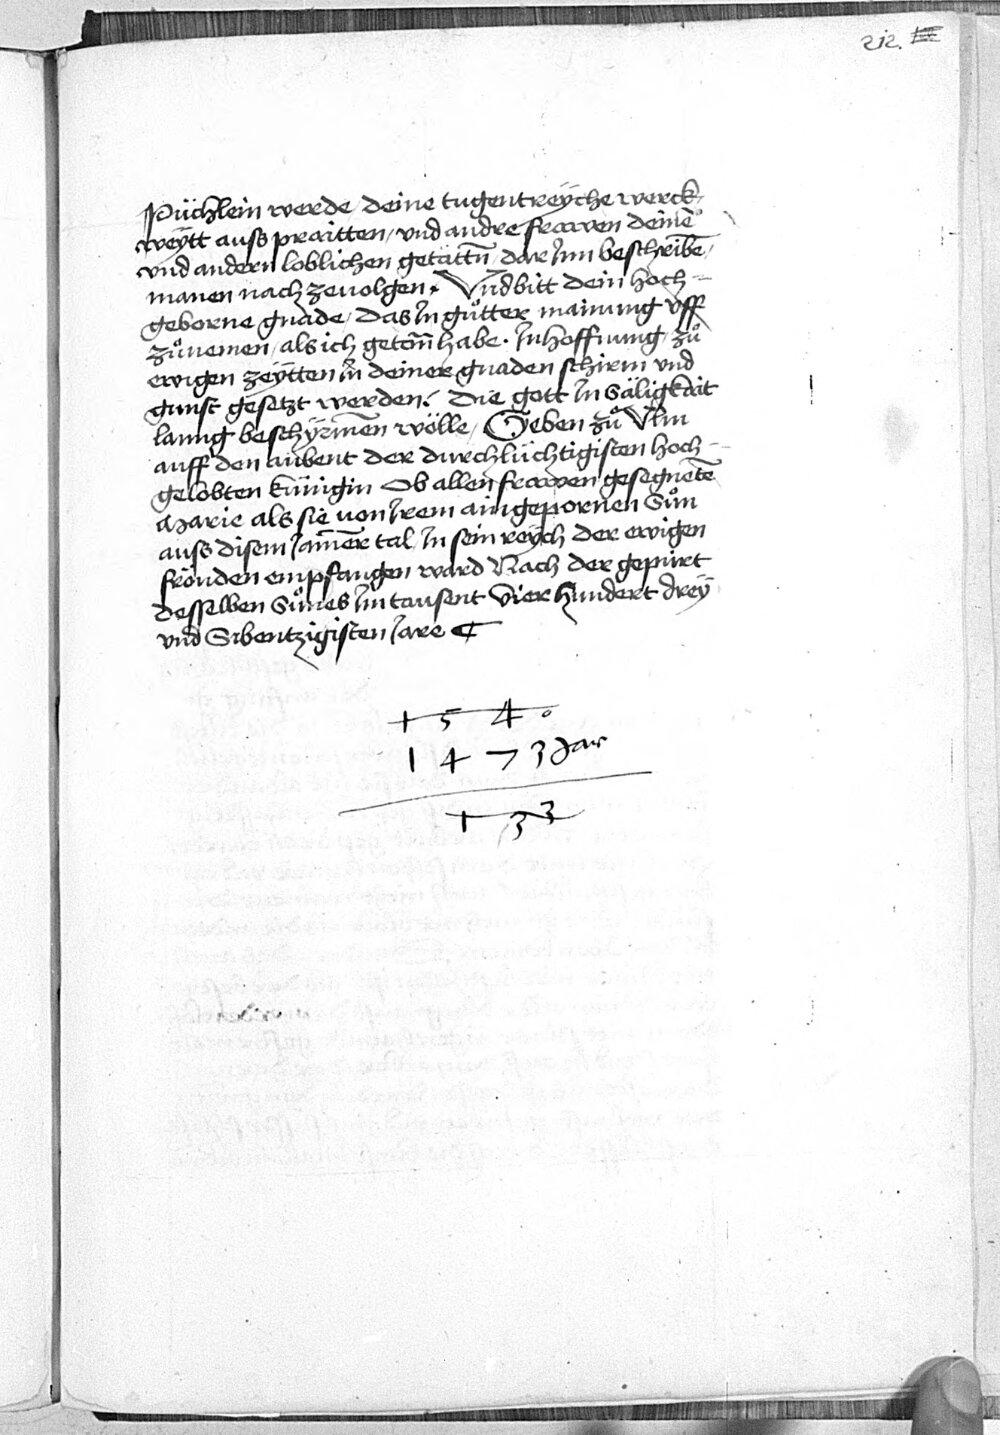 212.
Püchlein werde / deine tugentreÿche werck /
weÿtt auss praitten / vnd andre frawen deine͂
vnd andern loblichen getättn̄ / dar Jnn beschribē /
manen nach zeuolgen. Vnd bitt dein hoch =
geborne gnade / das In gůtter mainung vff
zůnemen / als ich getān̄ habe. In hoffnung / zů
ewigen zeÿtten In deiner gnaden schirm vnd
gunst gesetzt werden. Die gott In säligkait
lanng beschÿrmen wölle / Geben zů Vlm
auff den aubent der durchlüchtigisten hoch =
gelobten künigin Ob allen frawen gesegnētē
Marie als sie von Irem aingepornen Sůn
auss disem Jamer tal / In sein reÿch der ewigen
fröuden empfangen ward Nach der gepurt
desselben Sůnes Im tausent vier hundert dreÿ
vnd Sibentzigisten Jare
1 5 4 0
1 4 7 3 Jar
1 3 3